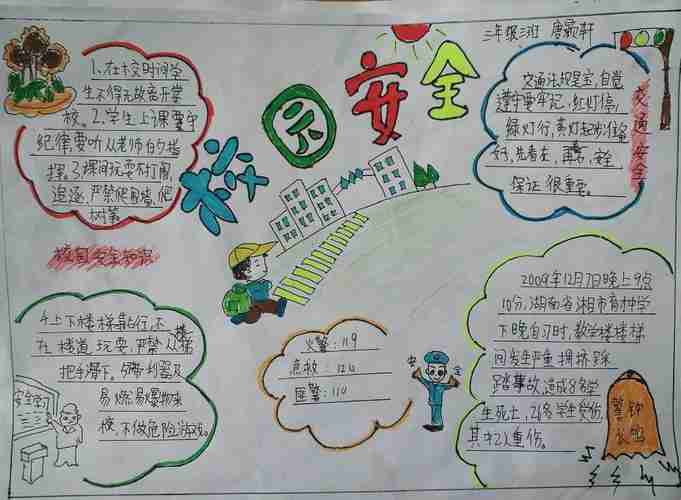 三年级三班 唐颢轩
校园安全
1、在校时间学
生不得无故离开学
校。2、学生上课要守
纪律要听从老师的指
挥。3、课间玩耍不打闹,
追逐,严禁爬围墙、爬
树等
校园安全知识
交通法规是宝,自觉
遵守要牢记,红灯停,
绿灯行,黄灯起步准备
好,先看左,再看右,安全
保证很重要。
交通安全
4、上下楼梯靠右行,不
在楼道玩耍,严禁从楼梯
把手滑下。5、带利器及
易燃易爆物来
校,不做危险游戏。
火警:119
急救:120
匪警:110
安全
2009年12月7日晚上9点
10分,湖南省湘市育才中学
下晚自习时,教学楼楼梯
间发生严重拥挤踩
踏事故,造成8名学
生死亡,26名学生受伤
其中2人重伤。
警钟
长鸣